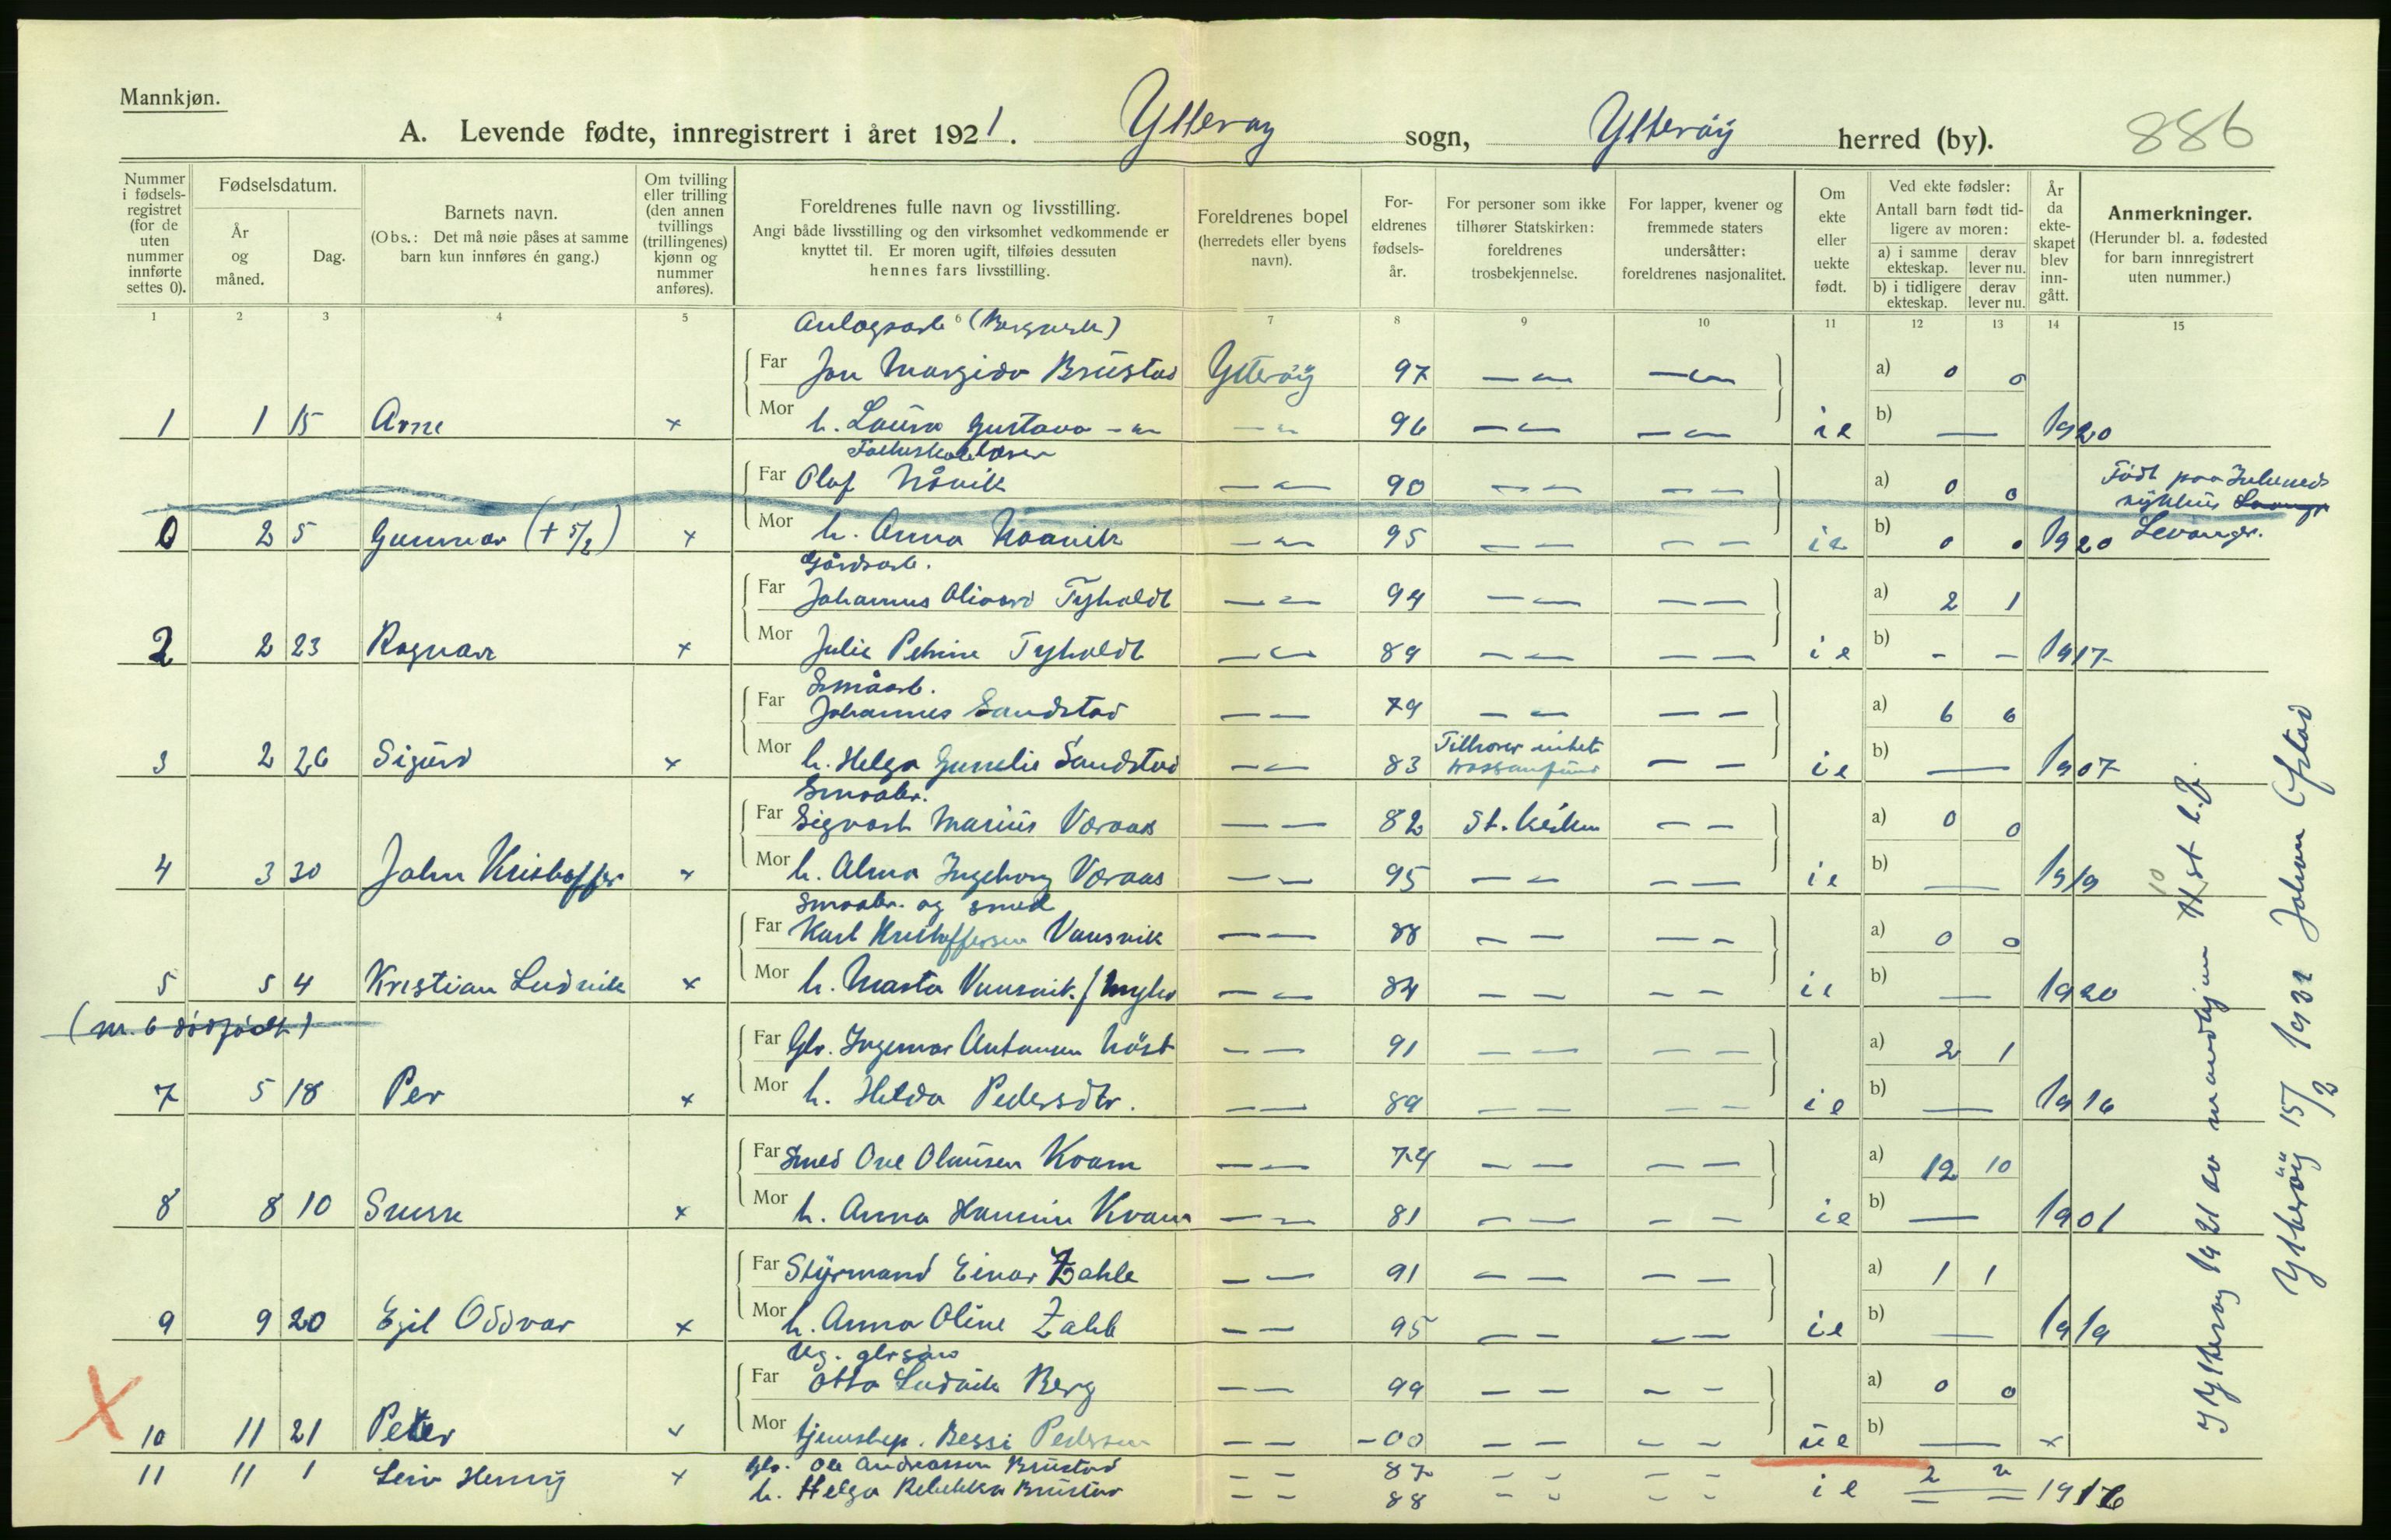 Mannkjøn.
886
A. Levende fødte, innregistrert i året 1921. Ytterøy sogn, Ytterøy herred (by).
Nummer i fødsels-registret (for de uten nummer innførte settes 0).
Fødselsdatum.
År og måned.
Dag.
Barnets navn.
(Obs.: Det må nøie påses at samme barn kun innføres én gang.)
Om tvilling eller trilling (den annen tvillings (trillingenes) kjønn og nummer anføres).
Foreldrenes fulle navn og livsstilling.
Angi både livsstilling og den virksomhet vedkommende er knyttet til. Er moren ugift, tilføies dessuten hennes fars livsstilling.
Foreldrenes bopel (herredets eller byens navn).
For-eldrenes fødsels-år.
For personer som ikke tilhører Statskirken: foreldrenes trosbekjennelse.
For lapper, kvener og fremmede staters undersåtter: foreldrenes nasjonalitet.
Om ekte eller uekte født.
Ved ekte fødsler: Antall barn født tid-ligere av moren:
a) i samme ekteskap. derav lever nu.
b) i tidligere ekteskap. derav lever nu.
År da ekte-skapet blev inn-gått.
Anmerkninger.
(Herunder bl. a. fødested for barn innregistrert uten nummer.)
1 2 3 4 5 6 7 8 9 10 11 12 13 14 15
Anlægsarb (Bergverk)
Far Jon Margido Brustad Ytterøy 97 — — — — a) 0 0
1 1 15 Arne × Mor h. Laura Gustava — — — — 96 — — — — ie b) — 1920
Folkeskolelærer
Far Olaf Nåvik — — 90 — — — — a) 0 0 Født paa Inherreds
sykehus
0 2 5 Gunnar († 5/2) × Mor h. Anna Naavik — — 95 — — — — ie b) 0 0 1920 Levanger.
Gårdsarb.
Far Johannes Olivard Tyholdt — — 94 — — — — a) 2 1
2 2 23 Ragnar × Mor Julie Petrine Tyholdt — — 89 — — — — ie b) - - 1917
Småarb.
Far Johannes Sandstad — — 79 — — — — a) 6 6
3 2 26 Sigurd × Mor h. Helga Gunelie Sandstad — — 83 Tilhører intet trossamfund — — ie b) — 1907
Smaabr.
Far Sigvart Marius Væraas — — 82 St. kirken — — a) 0 0
4 3 30 John Kristoffer × Mor h. Alma Ingeborg Væraas — — 95 — — — — ie b) — 1919
Smaabr. og smed
Far Karl Kristoffersen Vansvik — — 88 — — — — a) 0 0
5 5 4 Kristian Ludvik × Mor h. Marta — — 84 — — — — ie b) — 1920
(nr. 6 dødfødt)
Far Gbr. Ingemar Antonsen Nøst — — 91 — — — — a) 2 1
7 5 18 Per × Mor h. Hilda Pedersdtr. — — 89 — — — — ie b) — 1916
Far Smed Ove Olausen Kvam — — 74 — — — — a) 12 10
8 8 10 Sverre × Mor h. Anna Hansine Kvam — — 81 — — — — ie b) — 1901
Far Styrmand Einar Zahle — — 91 — — — — a) 1 1
9 9 20 Egil Oddvar × Mor h. Anna Oline Zahle — — 95 — — — — ie b) — 1919
Ug. gbrsøn
Far Otto Ludvik Berg — — 99 — — — — a) 0 0
X
10 11 21 Peter × Mor tjenestep. Bessi Pedersen — — -00 — — — — ue b) — ×
Gbr. Ole Andreassen Brustad — — 87 — — — — 2 2
11 11 1 Leiv Henry × h. Helga Rebekka Brustad — — 88 — — — — ie — — 1916
I Ytterøy 1921 av mandkjøn 11 10 st l.f.
Ytterøy 15/2 1922 Johan Ofstad